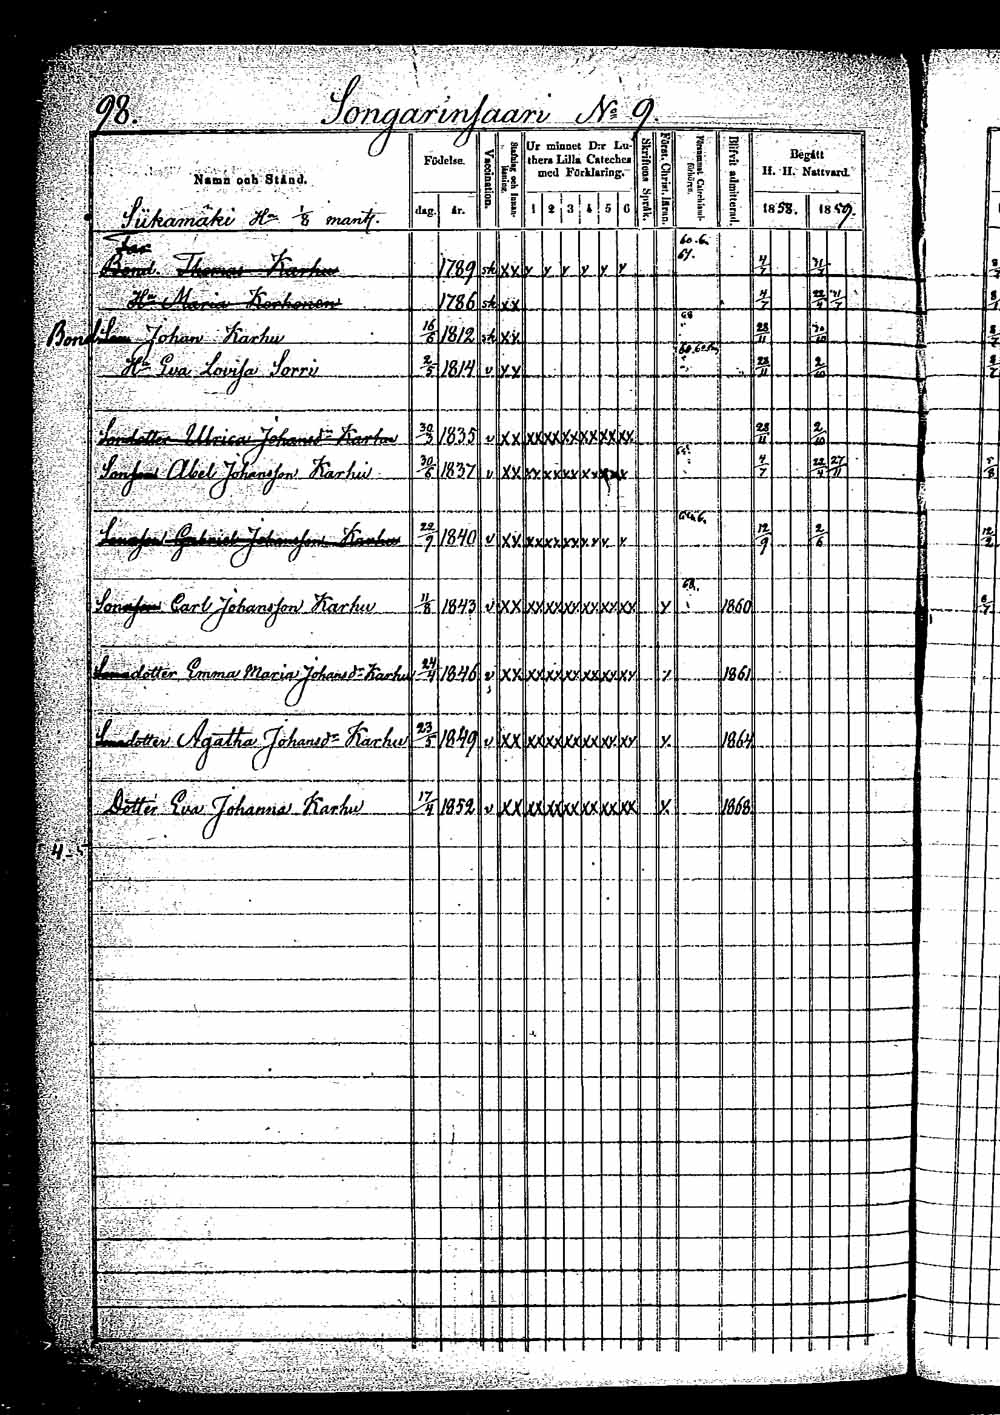 98. Songarinsaari N:o 9.
Namn och Stånd.
Födelse.
dag. år.
Vaccination.
Stafning och Innanläsning.
Ur minnet D:r Luthers Lilla Cateches med Förklaring.
1 2 3 4 5 6
Skriftens Språk.
Först. Christ. läran.
Blifvit admitterad.
Begått H. H. Nattvard.
1858. 1859.
Siikamäki Hn 1/8 mantl.
Far
Bond. Thomas Karhu 1789 sk xx y y y y y y 60.6. 67. 4/7 31/7
Hu Maria Korhonen 1786 sk xx 4/7 22/4 31/7
Bond. Son Johan Karhu 16/6 1812 sk xx 68 28/11 30/10
Hu Eva Lovisa Sorri 2/5 1814 v xx 28/11 2/10
Sondotter Ulrica Johansdr Karhu 30/3 1835 v xx xx xx xx xx xx xx 28/11 2/10
Sonson Abel Johansson Karhu 30/6 1837 v xx xx xx xx xx xx x 65. 4/7 22/4 27/11
Sonson Gabriel Johansson Karhu 29/9 1840 v xx xx xx xx x x x 12/9 2/6
Sonson Carl Johansson Karhu 11/8 1843 v xx xx xx xx xx xx xx y 68. 1860
Sonsdotter Emma Maria Johansdr Karhu 24/4 1846 v xx xx xx xx xx xx xx y 1861
Sonsdotter Agatha Johansdr Karhu 23/5 1849 v xx xx xx xx xx xx xx y. 1864
Dotter Eva Johanna Karhu 17/4 1852 v xx xx xx xx xx xx xx y. 1868
4-5